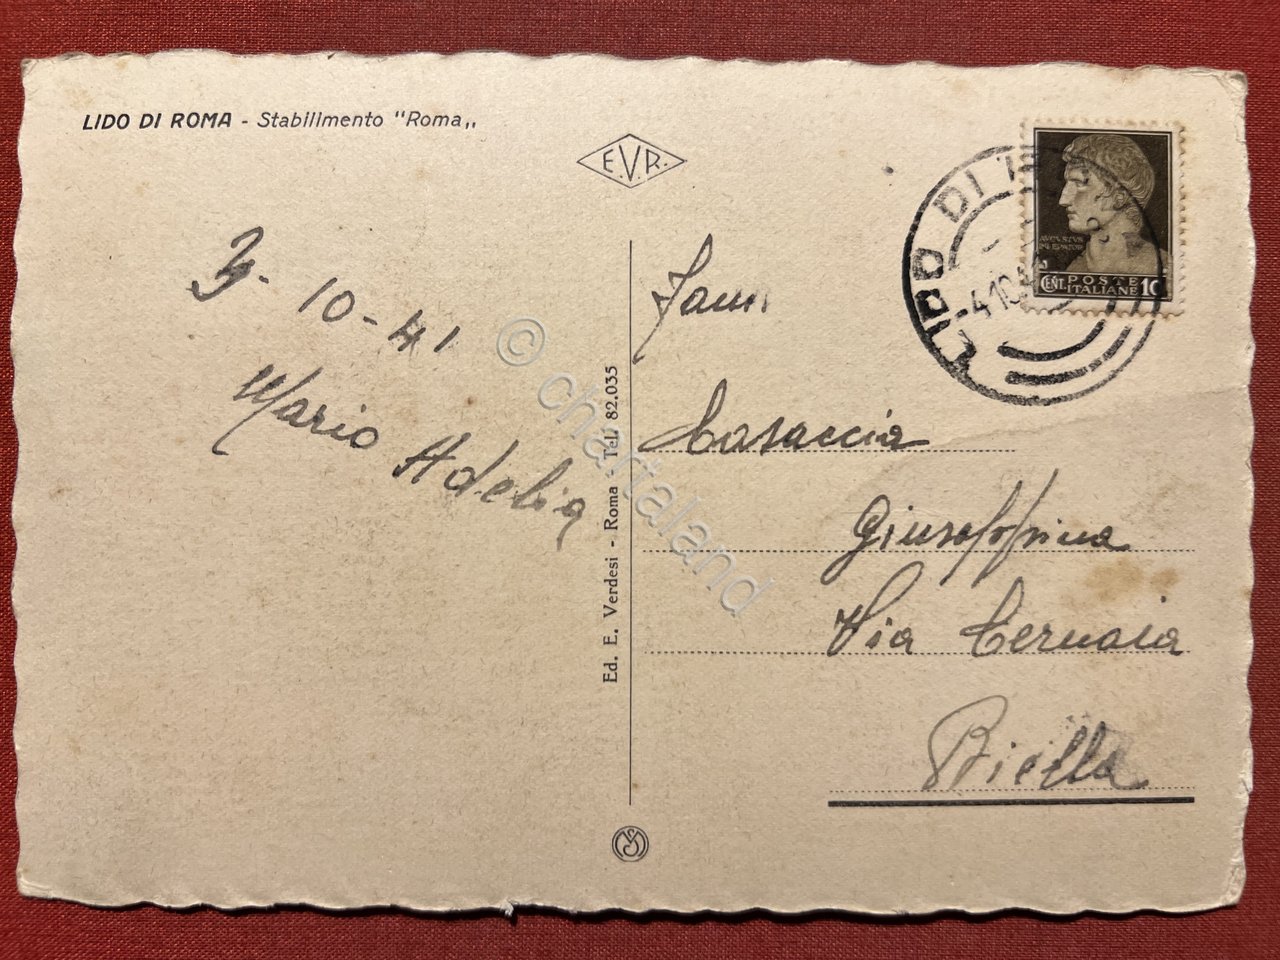 LIDO DI ROMA - Stabilimento "Roma„
E.V.R.
3-10-41
Mario Adelia
Fam
Casaccia
Giuseppina
Via Cernaia
Biella
Ed. E. Verdesi - Roma - Tel. 82.035
LIDO DI
-4.10.4
AVGVSTVS
IMPERATOR
CENT. POSTE 10
ITALIANE
© chartaland